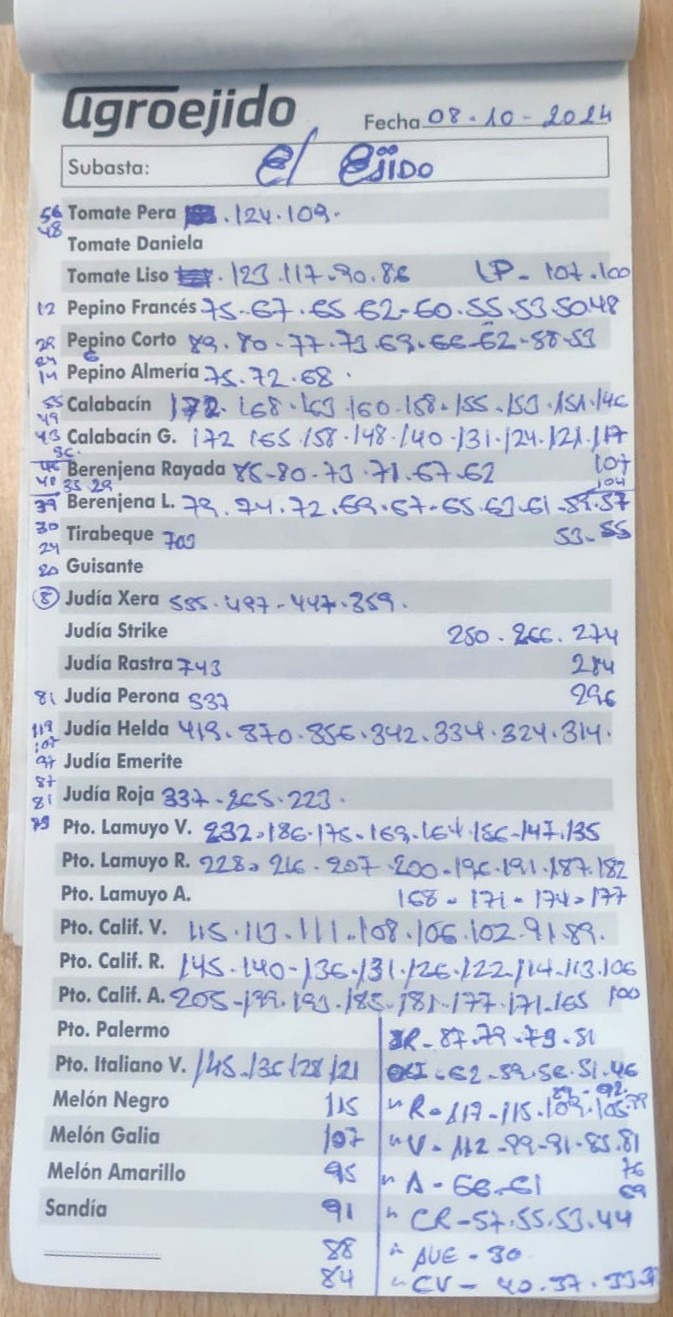 agroejido
Fecha 08-10-2024
Subasta: El EjiDO
56 Tomate Pera . 124.109.
48
Tomate Daniela
Tomate Liso . 123.117.90.86 LP- 107.100
12 Pepino Francés 75-67.65 62-60.55.53.50.48
Pepino Corto 89.80-77.73.69.66-62-58-53
14 Pepino Almería 75.72.68.
55 Calabacín 172.168.163.160.158.155.153.151.146
49
43 Calabacín G. 172 165.158.148.140.131.124.121.117
Berenjena Rayada 85-80-73.71.67.62 107
104
40 35.29
Berenjena L. 79.74.72.69.67-65.63.61-59.57
30 Tirabeque 703 53-55
24
20 Guisante
8 Judía Xera 585.497-447.359.
Judía Strike 250.266.274
Judía Rastra 743 284
81 Judía Perona 537 296
119 Judía Helda 419.370.356.342.334.324.314.
107
97 Judía Emerite
87
81 Judía Roja 337-265.223.
Pto. Lamuyo V. 232.186-175.169.164.156-147.135
Pto. Lamuyo R. 228.216.207.200-196.191.187.182
Pto. Lamuyo A. 168-171-174-177
Pto. Calif. V. 115.113.111.108.106.102.91.89.
Pto. Calif. R. 145.140-136.131.126.122.114.113.106
Pto. Calif. A. 205-199.193.185.181.177.171.165 100
Pto. Palermo -87.79.73.51
Pto. Italiano V. 145.136.128.121 .62-59.56.51.46
Melón Negro 115 " R-117-115.109.105.99
Melón Galia 107 " V-112-99-91-85.81
Melón Amarillo 95 " A-66-61 76
69
Sandía 91 " CR-57.55.53.44
88 " AUE-30
84 " CV-40.37.33.31